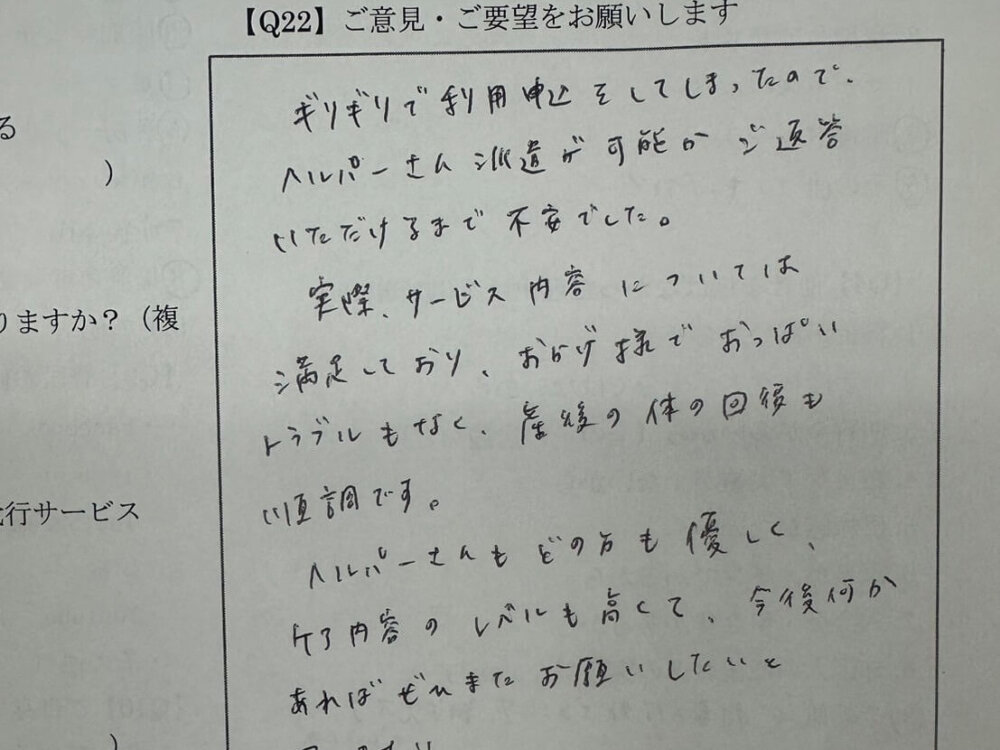 【Q22】ご意見・ご要望をお願いします
ギリギリで利用申込をしてしまったので、
ヘルパーさん派遣が可能かご返答
いただけるまで不安でした。
実際、サービス内容については
満足しており、おかげ様でおっぱい
トラブルもなく、産後の体の回復も
順調です。
ヘルパーさんもどの方も優しく、
ケア内容のレベルも高くて、今後何か
あればぜひまたお願いしたいと
る
)
りますか？（複
行サービス
)